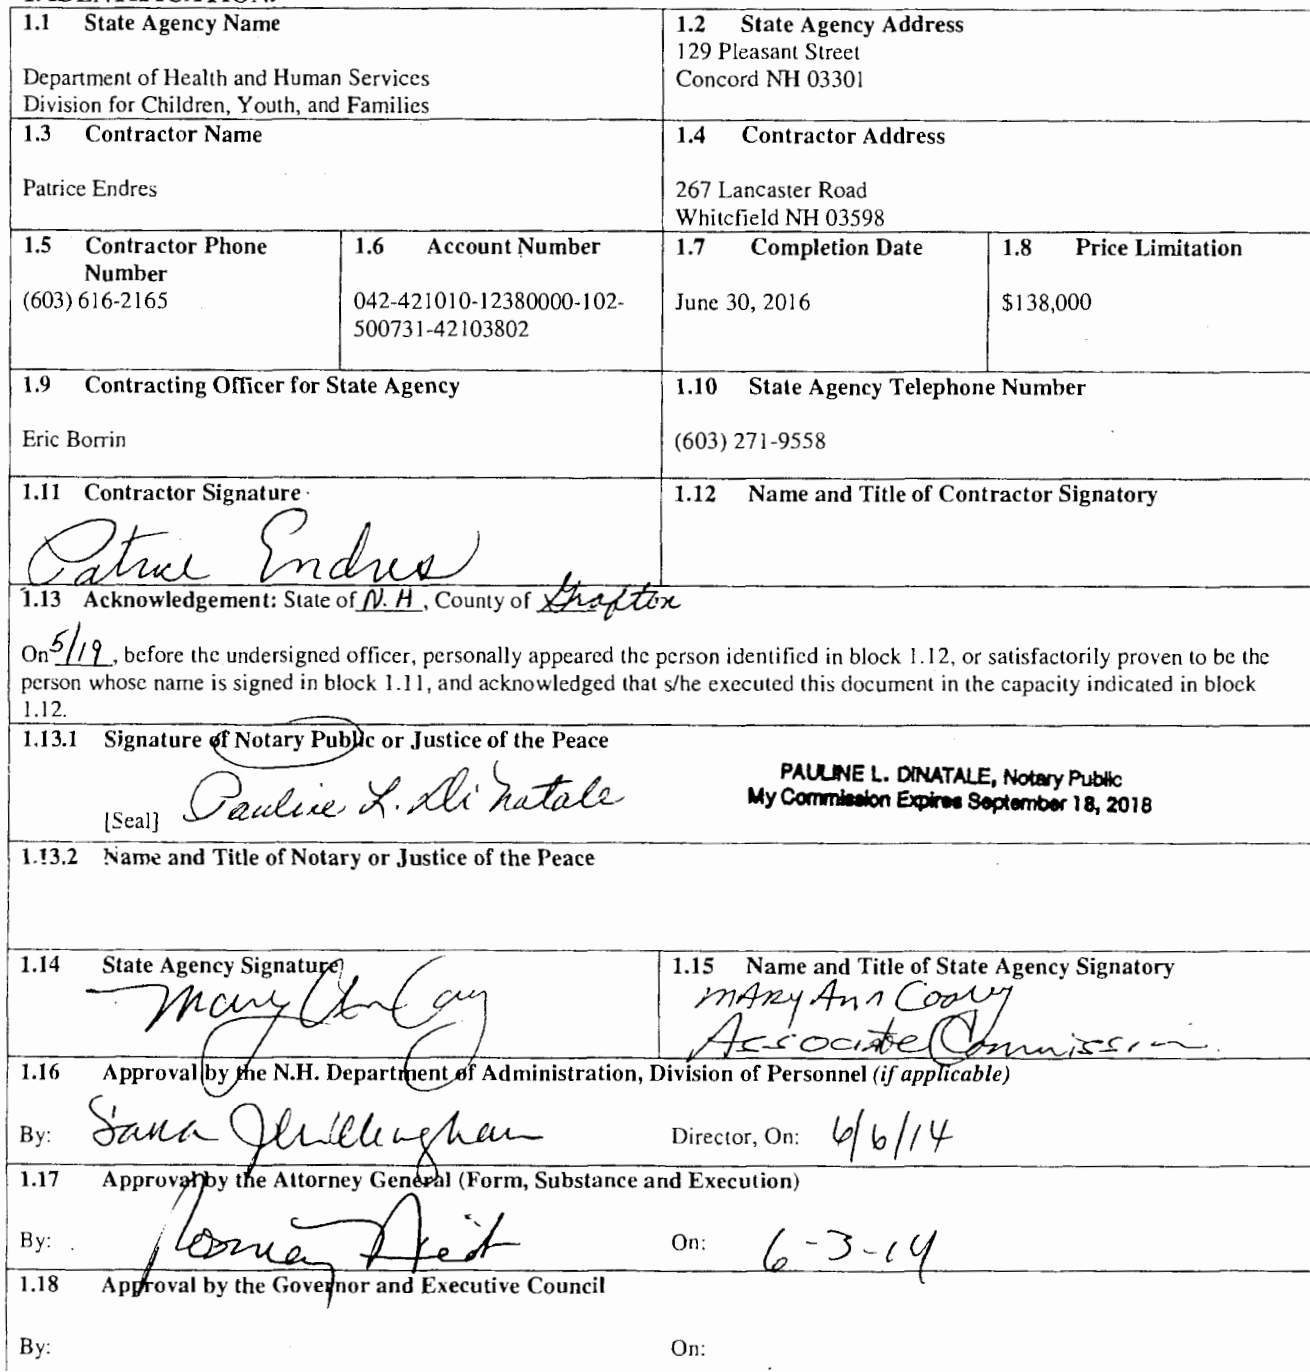 1.1 State Agency Name
Department of Health and Human Services
Division for Children, Youth, and Families
1.2 State Agency Address
129 Pleasant Street
Concord NH 03301
1.3 Contractor Name
Patrice Endres
1.4 Contractor Address
267 Lancaster Road
Whitefield NH 03598
1.5 Contractor Phone
Number
(603) 616-2165
1.6 Account Number
042-421010-12380000-102-
500731-42103802
1.7 Completion Date
June 30, 2016
1.8 Price Limitation
$138,000
1.9 Contracting Officer for State Agency
Eric Borrin
1.10 State Agency Telephone Number
(603) 271-9558
1.11 Contractor Signature
Patrice Endres
1.12 Name and Title of Contractor Signatory
1.13 Acknowledgement: State of N.H, County of Grafton
On 5/19, before the undersigned officer, personally appeared the person identified in block 1.12, or satisfactorily proven to be the
person whose name is signed in block 1.11, and acknowledged that s/he executed this document in the capacity indicated in block
1.12.
1.13.1 Signature of Notary Public or Justice of the Peace
Pauline L. DiNatale
[Seal]
PAULINE L. DINATALE, Notary Public
My Commission Expires September 18, 2018
1.13.2 Name and Title of Notary or Justice of the Peace
1.14 State Agency Signature
1.15 Name and Title of State Agency Signatory
Mary Ann Cooney
Associate Commission
1.16 Approval by the N.H. Department of Administration, Division of Personnel (if applicable)
By:
Director, On: 6/6/14
1.17 Approval by the Attorney General (Form, Substance and Execution)
By:
On: 6-3-14
1.18 Approval by the Governor and Executive Council
By:
On: